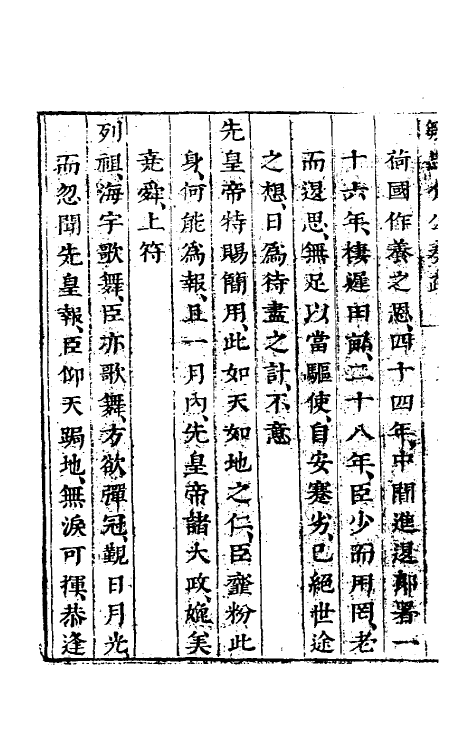 荷國作養之恩、四十四年、中間進退郎署一
十六年、棲遲田畝、二十八年、臣少而用罔、老
而退思、無足以當驅使、自安蹇劣、已絕世途
之想、日為待盡之計、不意
先皇帝特賜簡用、此如天如地之仁、臣虀粉此
身、何能為報、且一月內、先皇帝諸大政、媲美
堯舜、上符
列祖、海宇歌舞、臣亦歌舞、方欲彈冠、觀日月光
而忽聞先皇報、臣仰天跼地、無淚可揮、恭逢